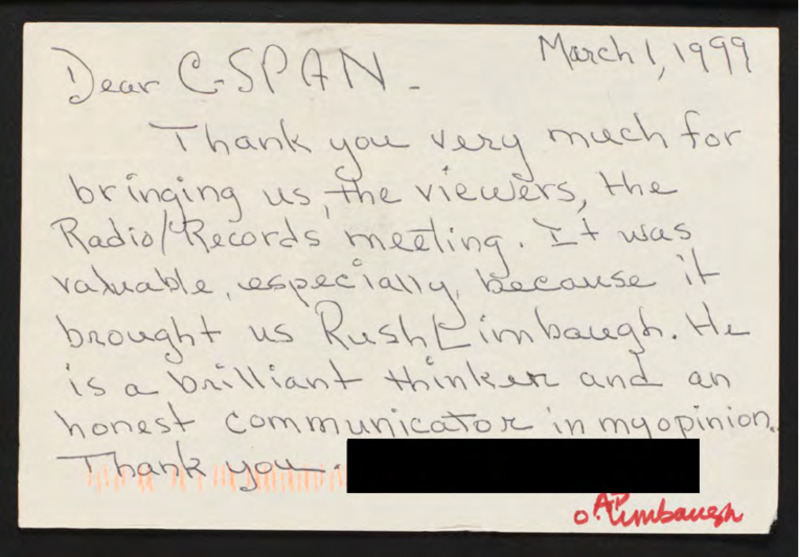 March 1, 1999
Dear C-SPAN -
Thank you very much for
bringing us, the viewers, the
Radio/Records meeting. It was
valuable, especially, because it
brought us Rush Limbaugh. He
is a brilliant thinker and an
honest communicator in my opinion.
Thank you.
Limbaugh